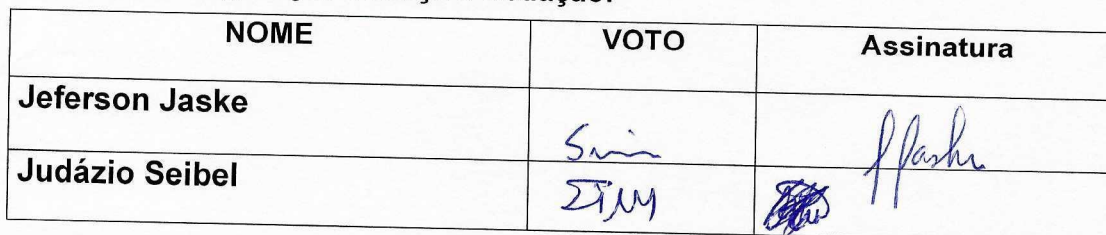 NOME VOTO Assinatura
Jeferson Jaske Sim
Judázio Seibel SIM